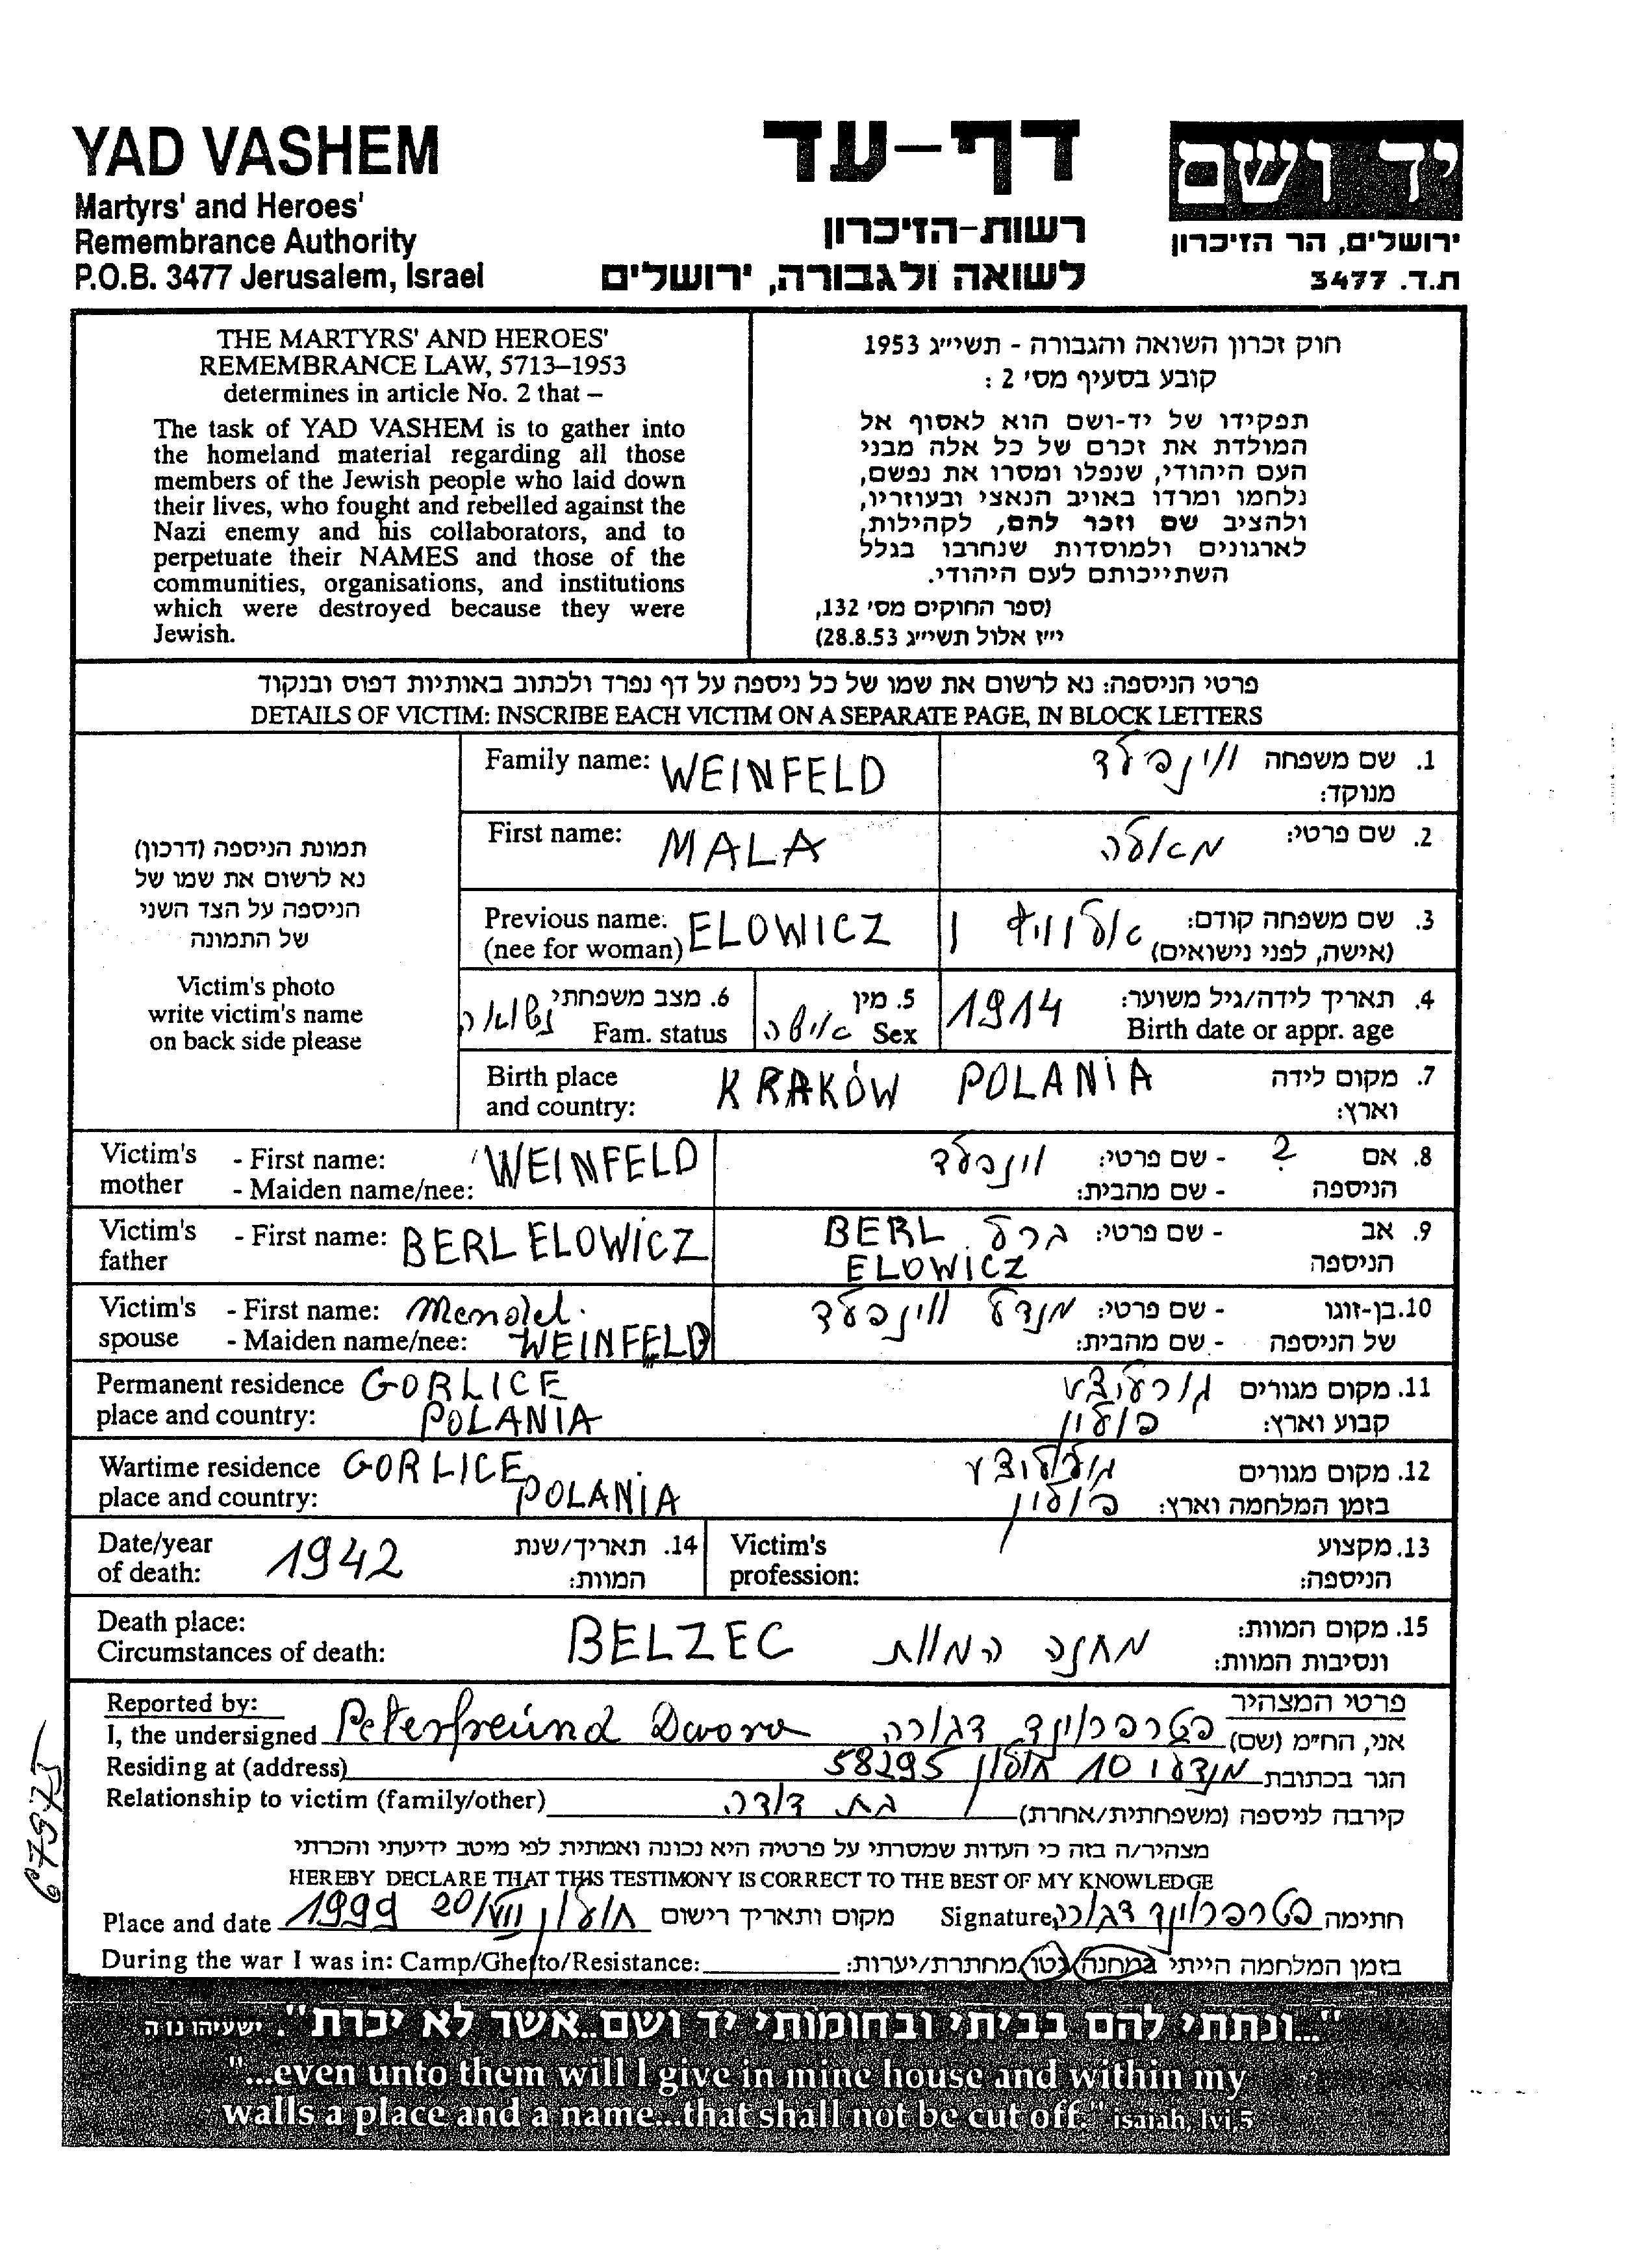 YAD VASHEM
Martyrs' and Heroes'
Remembrance Authority
P.O.B. 3477 Jerusalem, Israel
דף-עד
רשות-הזיכרון
לשואה ולגבורה, ירושלים
יד ושם
ירושלים, הר הזיכרון
ת.ד. 3477
THE MARTYRS' AND HEROES'
REMEMBRANCE LAW, 5713–1953
determines in article No. 2 that –
The task of YAD VASHEM is to gather into
the homeland material regarding all those
members of the Jewish people who laid down
their lives, who fought and rebelled against the
Nazi enemy and his collaborators, and to
perpetuate their NAMES and those of the
communities, organisations, and institutions
which were destroyed because they were
Jewish.
חוק זכרון השואה והגבורה - תשי"ג 1953
קובע בסעיף מס' 2 :
תפקידו של יד-ושם הוא לאסוף אל
המולדת את זכרם של כל אלה מבני
העם היהודי, שנפלו ומסרו את נפשם,
נלחמו ומרדו באויב הנאצי ובעוזריו,
ולהציב שם וזכר להם, לקהילות,
לארגונים ולמוסדות שנחרבו בגלל
השתייכותם לעם היהודי.
(ספר החוקים מס' 132,
י"ז אלול תשי"ג 28.8.53)
פרטי הניספה: נא לרשום את שמו של כל ניספה על דף נפרד ולכתוב באותיות דפוס ובנקוד
DETAILS OF VICTIM: INSCRIBE EACH VICTIM ON A SEPARATE PAGE, IN BLOCK LETTERS
תמונת הניספה (דרכון)
נא לרשום את שמו של
הניספה על הצד השני
של התמונה
Victim's photo
write victim's name
on back side please
Family name: WEINFELD
1. שם משפחה וינפלד
מנוקד:
First name: MALA
2. שם פרטי: מאלה
Previous name: ELOWICZ
(nee for woman)
3. שם משפחה קודם: אלוויץ
(אישה, לפני נישואים)
6. מצב משפחתי נשואה
Fam. status
5. מין אישה
Sex
4. תאריך לידה/גיל משוער: 1914
Birth date or appr. age
Birth place KRAKÓW POLANIA
and country:
7. מקום לידה
וארץ:
Victim's - First name: WEINFELD
mother - Maiden name/nee:
8. אם - שם פרטי: ? וינפלד
הניספה - שם מהבית:
Victim's - First name: BERL ELOWICZ
father
9. אב - שם פרטי: ברל BERL
הניספה ELOWICZ
Victim's - First name: Mendel
spouse - Maiden name/nee: WEINFELD
10. בן-זוגו - שם פרטי: מנדל וינפלד
של הניספה - שם מהבית:
Permanent residence GORLICE
place and country: POLANIA
11. מקום מגורים גורליצע
קבוע וארץ: פולין
Wartime residence GORLICE
place and country: POLANIA
12. מקום מגורים גורליצע
בזמן המלחמה וארץ: פולין
Date/year 1942
of death:
14. תאריך/שנת
המוות:
Victim's
profession:
13. מקצוע
הניספה:
Death place:
Circumstances of death: BELZEC
15. מקום המוות: מחנה המוות
ונסיבות המוות:
Reported by:
פרטי המצהיר
I, the undersigned Peterfreund Dwora
אני, הח"מ (שם) פטרפרוינד דבורה
Residing at (address)
הגר בכתובת 10 חולון 58295
Relationship to victim (family/other)
קירבה לניספה (משפחתית/אחרת) בת דודה
מצהיר/ה בזה כי העדות שמסרתי על פרטיה היא נכונה ואמתית לפי מיטב ידיעתי והכרתי
HEREBY DECLARE THAT THIS TESTIMONY IS CORRECT TO THE BEST OF MY KNOWLEDGE
Place and date 1999 20/VII חולון מקום ותאריך רישום
Signature פטרפרוינד דבורה חתימה
During the war I was in: Camp/Ghetto/Resistance:
בזמן המלחמה הייתי במחנה/גטו/מחתרת/יערות:
67975
"...ונתתי להם בביתי ובחומותי יד ושם..אשר לא יכרת". ישעיהו נו ה
"...even unto them will I give in mine house and within my
walls a place and a name...that shall not be cut off." isaiah, lvi,5